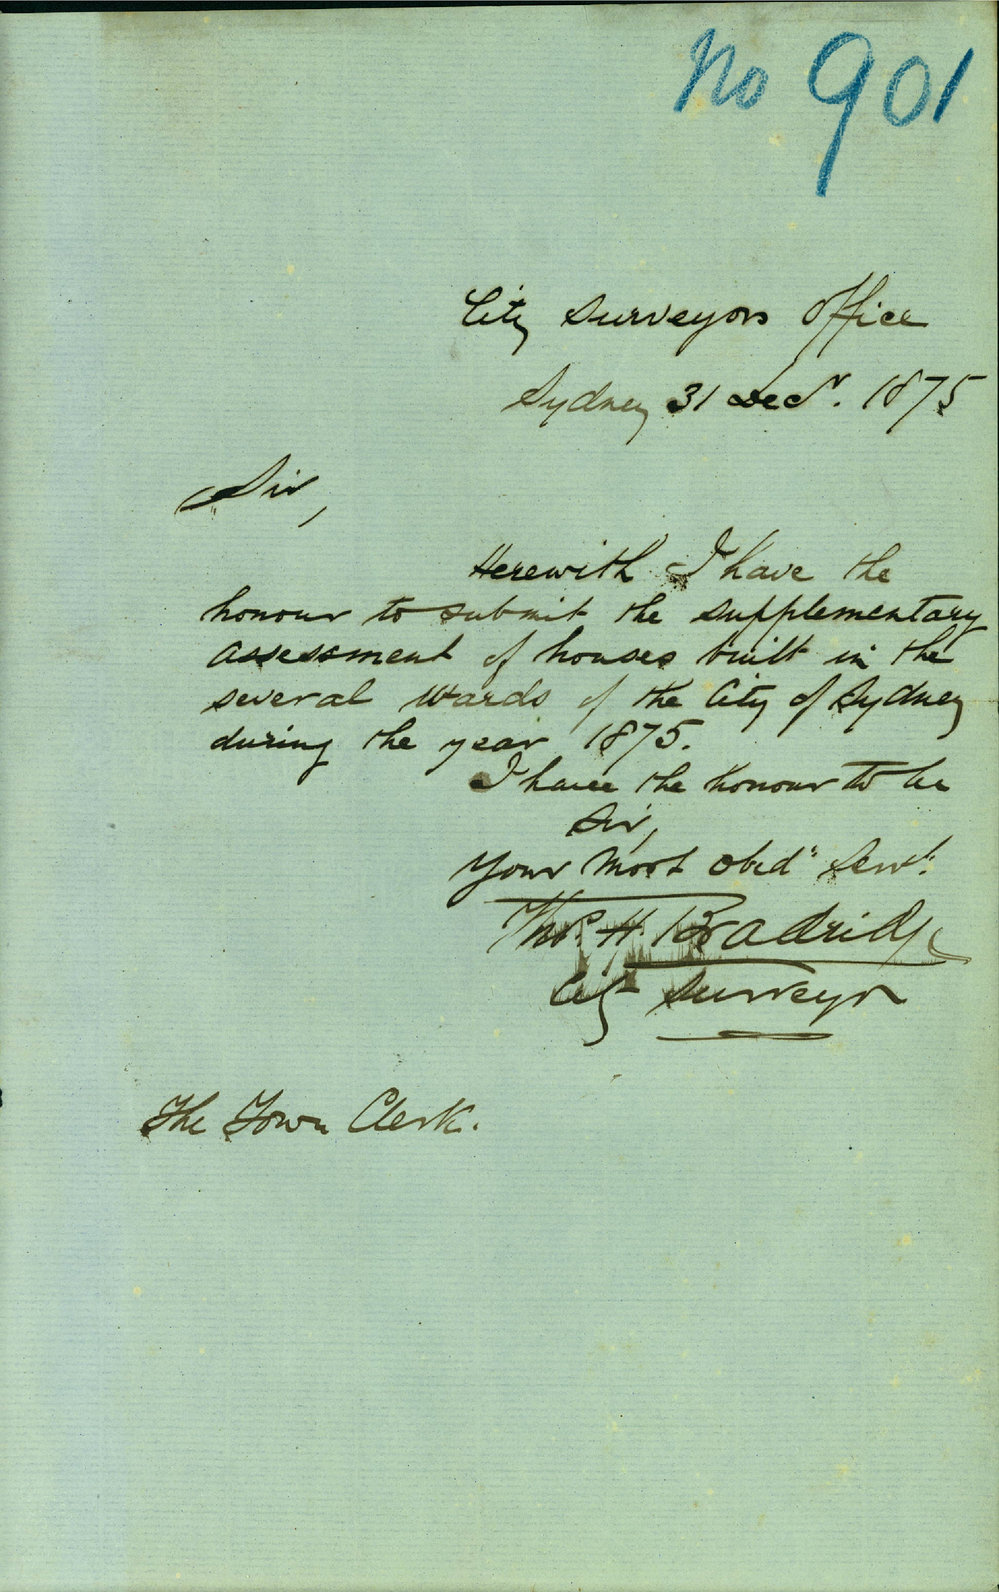 No 901
City Surveyors Office
Sydney 31 Decr. 1875
Sir,
Herewith I have the
honour to submit the supplementary
assessment of houses built in the
several Wards of the City of Sydney
during the year 1875.
I have the honour to be
Sir,
Your Most Obedt Servt.
Thos. H. Bradridge
City Surveyor
The Town Clerk.